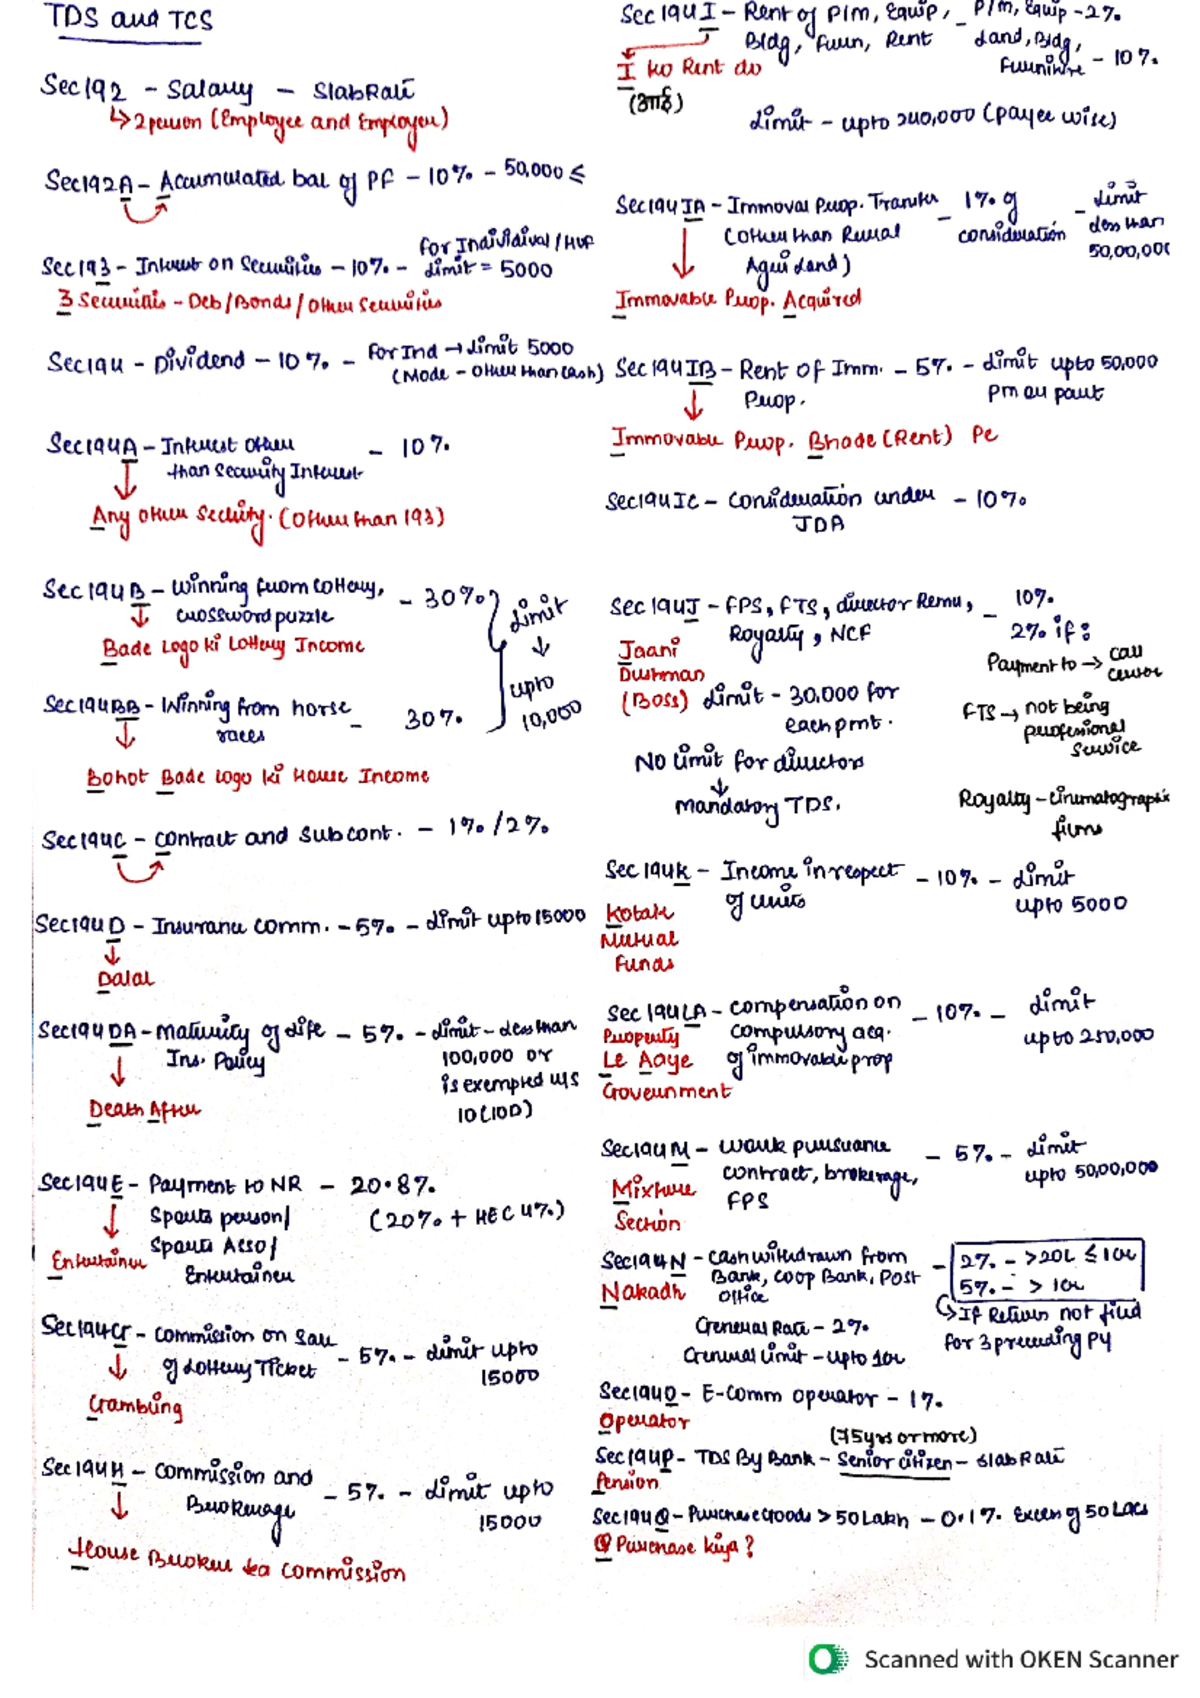 TDS and TCS
Sec 192 - Salary - Slab Rate
↳ 2 person (Employee and Employer)
Sec 192A - Accumulated bal of PF - 10% - 50,000 ≤
Sec 193 - Interest on Securities - 10% - for Individival/HUF limit = 5000
3 Securities - Deb/Bonds/other Securities
Sec 194 - Dividend - 10% - For Ind → limit 5000
(Mode - other than cash)
Sec 194A - Interest other - 10%
than Security Interest
Any other Security. (other than 193)
Sec 194B - Winning from lottery, - 30%
crossword puzzle
Bade logo ki Lottery Income
Sec 194BB - Winning from horse - 30%
races
limit
↓
upto
10,000
Bohot Bade logo ki House Income
Sec 194C - Contract and Subcont. - 1% / 2%
Sec 194D - Insurance comm. - 5% - limit upto 15000
Dalal
Sec 194DA - Maturity of life - 5% - limit - less than
Ins. Policy
100,000 or
is exempted u/s
10(10D)
Death After
Sec 194E - Payment to NR - 20.8%
Sports person/ (20% + HEC 4%)
Sports Asso/
Entertainer
Entertainer
Sec 194G - Commission on Sale
of Lottery Ticket - 5% - limit upto
15000
Gambling
Sec 194H - Commission and
Brokerage - 5% - limit upto
15000
House Broker ka commission
Sec 194I - Rent of P/m, Equip, - P/m, Equip - 2%
Bldg, Furn, Rent Land, Bldg,
Furniture - 10%
I ko Rent do
(आई)
limit - upto 240,000 (payee wise)
Sec 194IA - Immoval Prop. Transfer - 1% of - limit
(other than Rural consideration less than
Agri land) 50,00,000
Immovable Prop. Acquired
Sec 194IB - Rent of Imm. - 5% - limit upto 50,000
Prop. pm or part
Immovable Prop. Bhade (Rent) Pe
Sec 194IC - Consideration under - 10%
JDA
Sec 194J - FPS, FTS, director Remu, - 10%
Royalty, NCF 2% if:
Jaani
Dushman
(Boss)
Payment to → call
center
limit - 30,000 for
each pmt.
FTS → not being
professional
service
No limit for directors
↓
mandatory TDS.
Royalty - cinumatographix
films
Sec 194K - Income in respect - 10% - limit
of units upto 5000
Kotak
Mutual
Funds
Sec 194LA - compensation on - 10% - limit
compulsory acq. upto 250,000
of immovable prop
Property
Le Aaye
Government
Sec 194M - work pursuance - 5% - limit
contract, brokerage, upto 50,00,000
FPS
Mixture
Section
Sec 194N - cash withdrawn from - 2% - >20L ≤ 1cr
Bank, coop Bank, Post 5% - > 1cr
office
Nakadh
↳ If Return not filed
for 3 preceding PY
General Rate - 2%
General limit - upto 1cr
Sec 194O - E-Comm operator - 1%
Operator
(75yrs or more)
Sec 194P - TDS By Bank - Senior citizen - Slab Rate
Pension
Sec 194Q - Purchase Goods > 50 Lakh - 0.1% Excess of 50 Lacs
Q Purchase kiya?
Scanned with OKEN Scanner